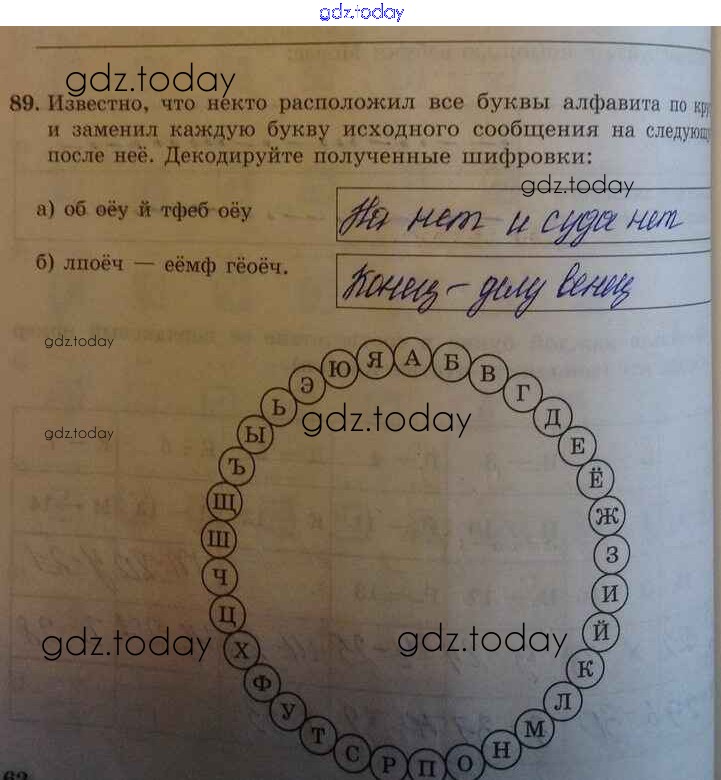 gdz.today
gdz.today
89. Известно, что некто расположил все буквы алфавита по кру
и заменил каждую букву исходного сообщения на следующу
после неё. Декодируйте полученные шифровки:
gdz.today
а) об оёу й тфеб оёу
На нет и суда нет
б) лпоёч — еёмф гёоёч.
Конец – делу венец
gdz.today
gdz.today
gdz.today
А Б В Г Д Е Ё Ж З И Й К Л М Н О П Р С Т У Ф Х Ц Ч Ш Щ Ъ Ы Ь Э Ю Я
gdz.today
gdz.today